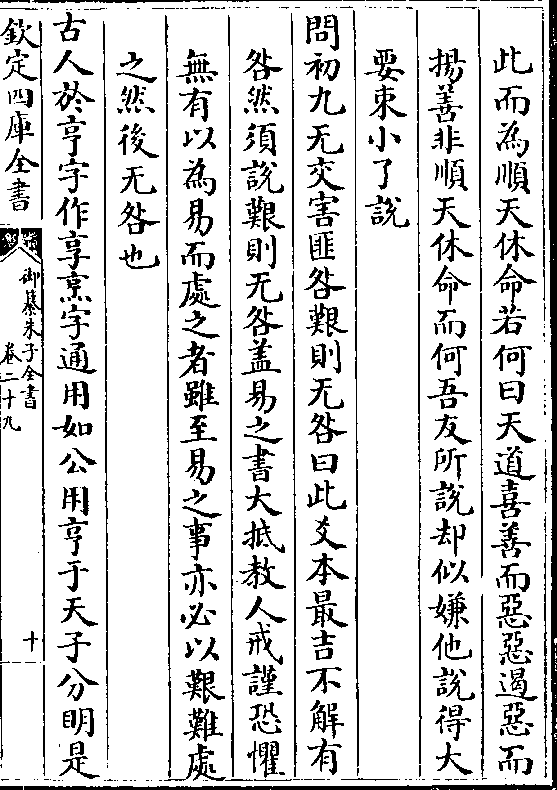 此而為順天休命若何曰天道喜善而惡惡遏惡而
揚善非順天休命而何吾友所說却似嫌他說得大
要束小了說
問初九无交害匪咎艱則无咎曰此爻本最吉不解有
咎然須說艱則无咎盖易之書大抵教人戒謹恐懼
無有以為易而處之者雖至易之事亦必以艱難處
之然後无咎也
古人於亨字作享烹字通用如公用亨于天子分明是
欽定四庫全書
御纂朱子全書
卷二十九
十